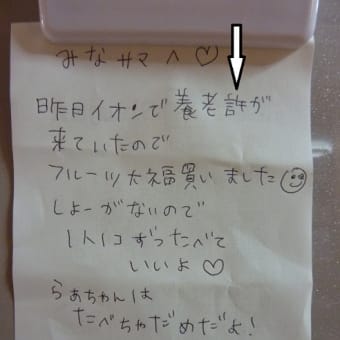 みなサマへ♡
昨日イオンで養老許が
来ていたので
フルーツ大福買いました☺
しょーがないので
1人1コずったべて
いいよ♡
らぁちゃんは
たべちゃだめだよ!